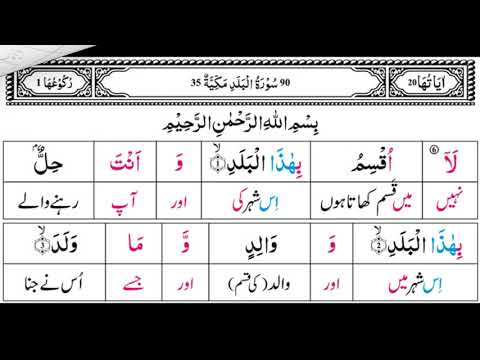 اٰیَاتُهَا 20 90 سُوْرَةُ الْبَلَدِ مَكِّیَّةٌ 35 رُكُوْعُهَا 1
بِسْمِ اللّٰهِ الرَّحْمٰنِ الرَّحِیْمِ
لَاۤ اُقْسِمُ بِهٰذَا الْبَلَدِۙ۝۱ وَ اَنْتَ حِلٌّۢ
نہیں میں قَسم کھاتا ہوں اِس شہر کی اور آپ رہنے والے
بِهٰذَا الْبَلَدِۙ۝۲ وَ وَالِدٍ وَّ مَا وَلَدَۙ۝۳
اِس شہر میں اور والد (کی قسم) اور جسے اُس نے جنا